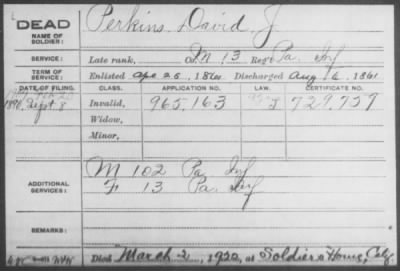 DEAD
NAME OF SOLDIER:
Perkins, David, J
SERVICE:
Late rank, Co. M 13 Reg't Pa. Inf
TERM OF SERVICE:
Enlisted Apr 25, 1861 Discharged Aug 6, 1861
DATE OF FILING. CLASS. APPLICATION NO. LAW. CERTIFICATE NO.
1890, Sept 8 Invalid, 965,163 J 729,759
Widow,
Minor,
ADDITIONAL SERVICES:
M 102 Pa Inf
F 13 Pa. Inf
REMARKS:
Died March 2, 1922, at Soldiers Home, Calif